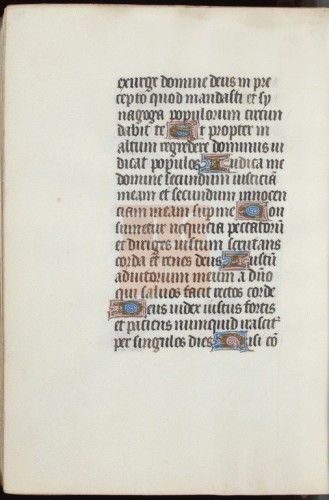 exurge domine deus in pre
cepto quod mandasti et sy
nagoga populorum circun
dabit te Et propter in
altum regredere dominus iu
dicat populos Iudica me
domine secundum iusticiā
meam et secundum innocen
ciam meam sup me Con
sumetur nequicia peccatorū
et diriges iustum scrutans
corda et renes deus Iustū
adiutorium meum a dn̄o
qui saluos facit rectos corde
Deus iudex iustus fortis
et paciens nunquid irascit᷑
per singulos dies Nisi cō